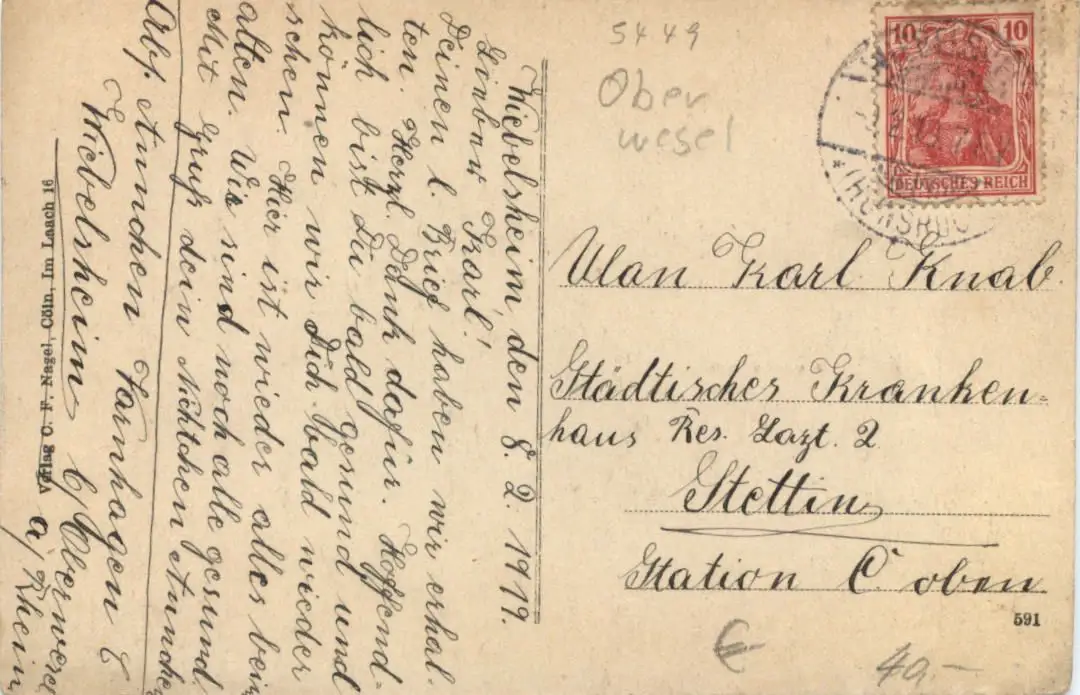 Wiebelsheim den 8. 2. 1919.
Lieber Karl!
Deinen l. Brief haben wir erhal-
ten. Herzl. Dank dafür. Hoffend-
lich bist du bald gesund und
können wir Dich bald wieder
sehen. Hier ist wieder alles beim
alten. Wir sind noch alle gesund.
Mit Gruß dein Nichtchen Annchen
Abs. Annchen Varnhagen
Wiebelsheim b/Oberwesel
a/Rhein
Verlag C. F. Nagel, Cöln, Im Laach 16
5449
Ober
wesel
10 10
DEUTSCHES REICH
(HUNSRÜCK
Ulan Karl Knab
Städtisches Kranken-
haus Res. Lazt. 2
Stettin
Station C oben
591
€
40,-